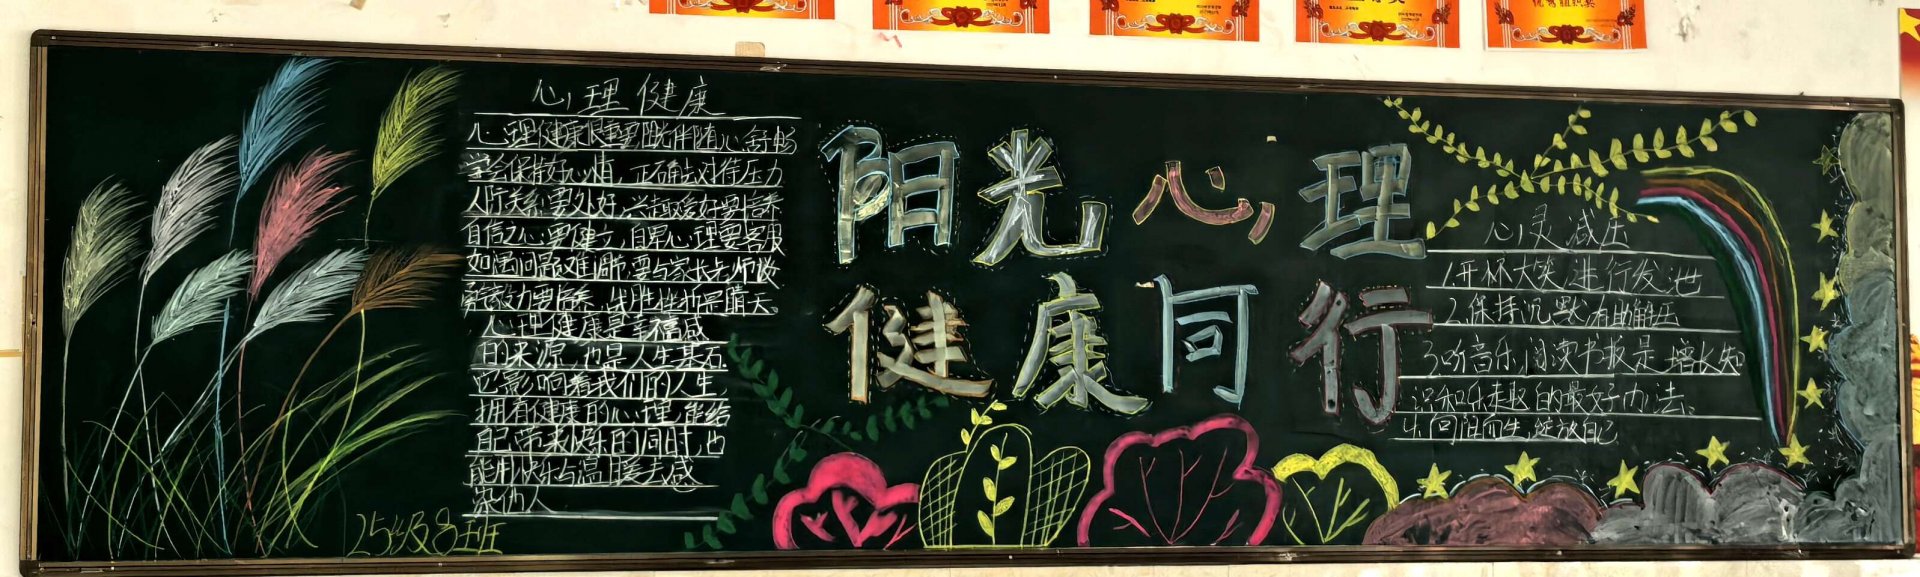 优秀组织奖
心理健康
心理健康很重要阳光伴随心舒畅
学会保持好心情，正确对待压力
人际关系要处好，兴趣爱好要培养
自信之心要建立，自卑心理要客服
如遇问题难调节，要与家长老师谈
承受能力要培养，战胜挫折是晴天。
心理健康是幸福感
的来源，也是人生基石.
它影响着我们的人生
拥有健康的心理，能给
自己带来快乐的同时，也
能用快乐与温暖去感
染他人
25级8班
阳光心理
健康同行
心灵减压
1.开怀大笑，进行发泄
2.保持沉默有助解压
3.听音乐，阅读书报是增长知
识和乐趣的最好办法。
向阳而生，绽放自己